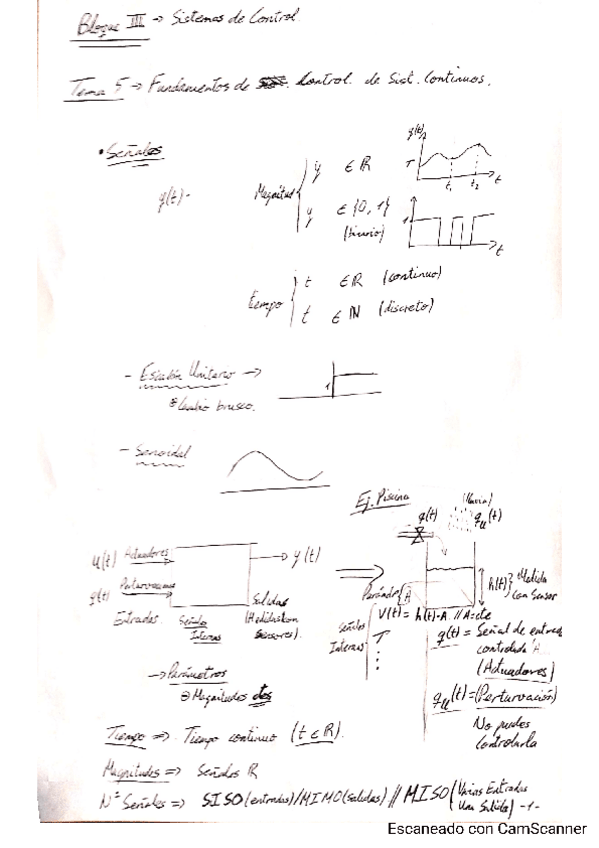 Bloque III → Sistemas de Control.
Tema 5 → Fundamentos de Control de Sist. Continuos.
• Señales
y(t)
Magnitud
y ∈ ℝ
y ∈ {0, 1}
(binario)
y(t)
T
t₁ t₂ t
1
t
tiempo
t ∈ ℝ (continuo)
t ∈ ℕ (discreto)
- Escalón Unitario →
1
Cambio brusco.
- Senoidal
Ej. Piscina
(lluvia)
q(t) qll(t)
u(t) Actuadores
y(t)
Perturvaciones
Entradas
Señales Internas
Salidas
(Medidas con Sensores).
→ Parámetros
Magnitudes ctes
h(t)} Medida con Sensor
A
Señales Internas
V(t) = h(t)·A // A=cte
T
q(t) = Señal de entrada controlada
(Actuadores)
qll(t) = (Perturvación)
No puedes Controlarla
Tiempo => Tiempo continuo (t ∈ ℝ).
Magnitudes => Señales ℝ
Nº Señales => SISO (entradas) / MIMO (salidas) // MISO (Varias Entradas Una Salida) -1-
Escaneado con CamScanner